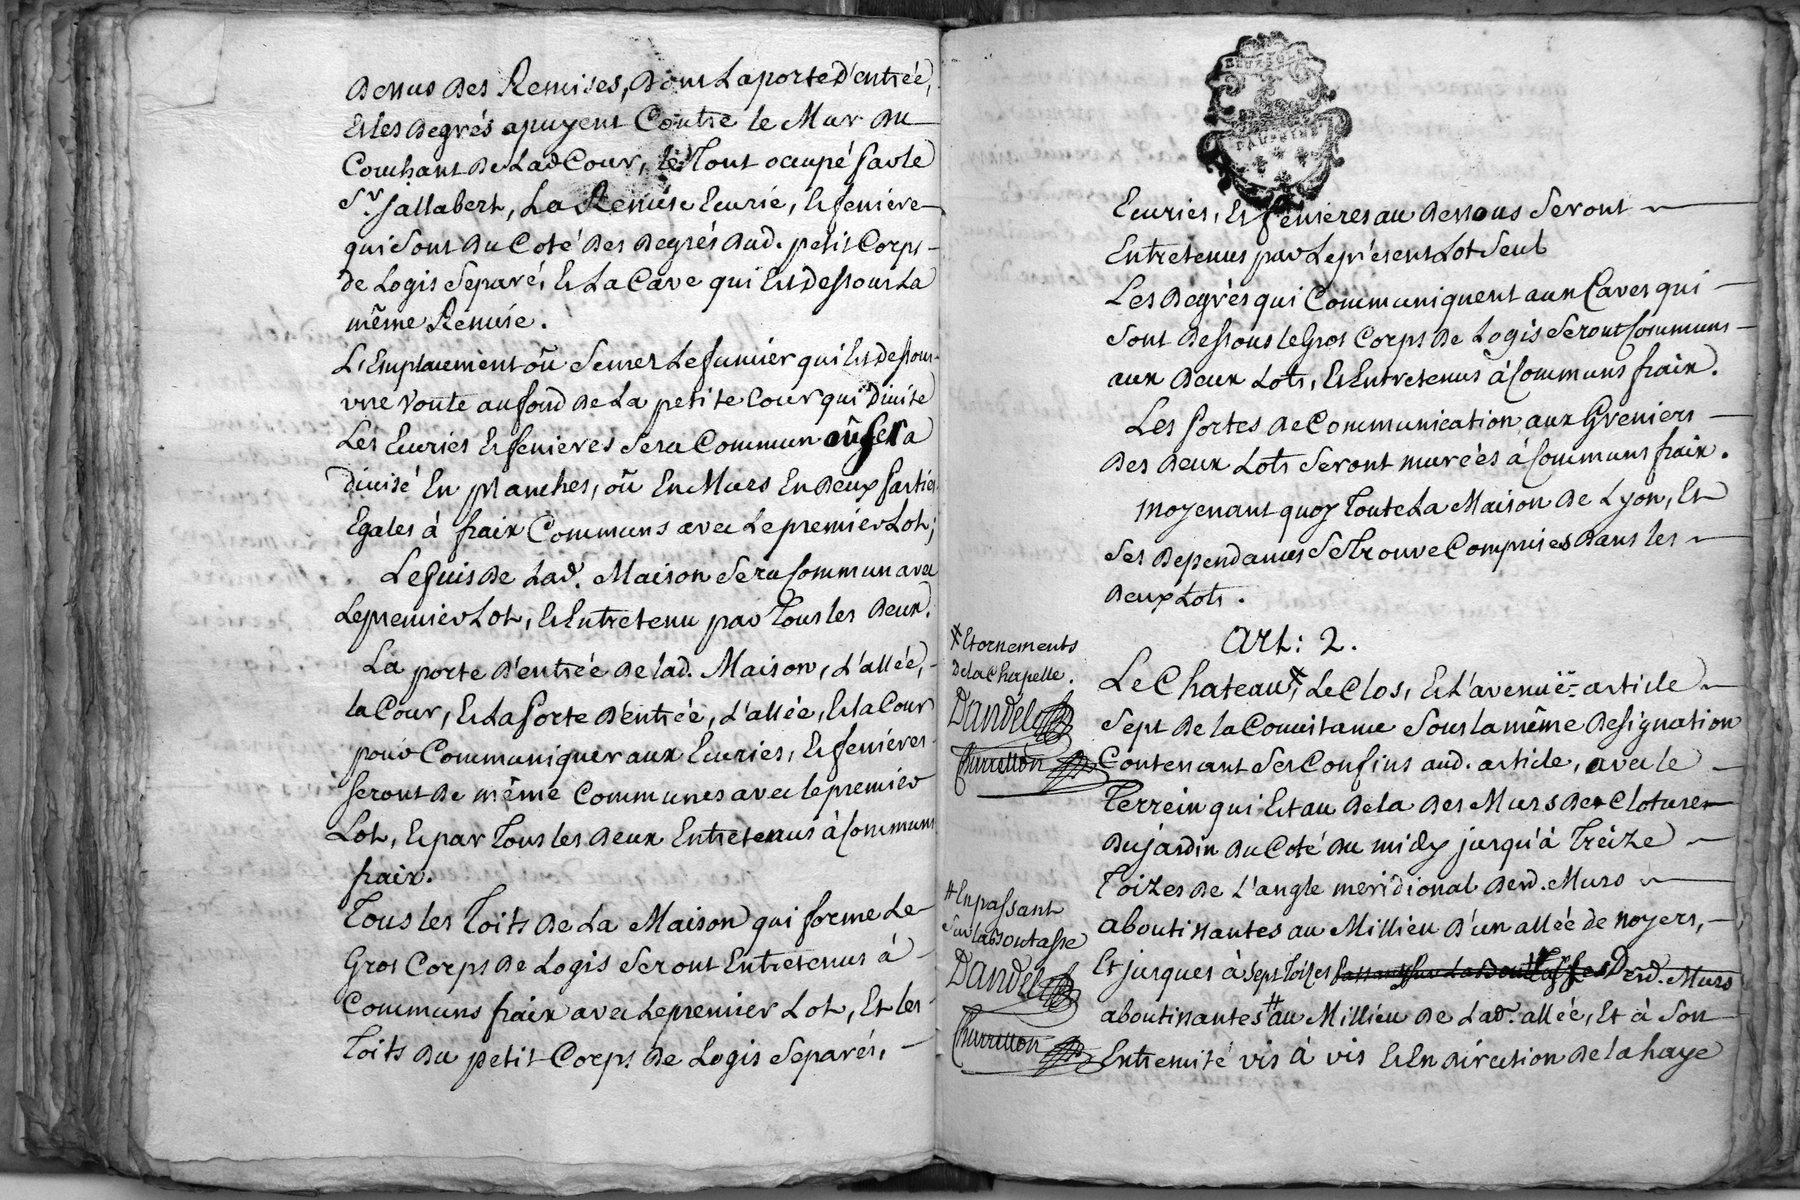 dessus des Remises, dont La porte d'entrée,
Et les degrés apuyent Contre le Mur du
Couchant de Lad Cour, le Tout occupé par le
Sr. Jallabert, La Remise Ecurie, Et feniere
qui sont du Coté des degrés dud. petit Corps
de Logis Separé, Et La Cave qui Est dessous La
même Remise.
L'Emplacement où Se met Le fumier qui Est dessous
une voute au fond de La petite Cour qui Divise
Les Ecuries Et fenieres Sera Commun où Sera
divisé En planches, où En Murs En deux parties
Egales à fraix Communs avec Le premier Lot;
Le Puis de Lad. Maison Sera Commun avec
Le premier Lot, Et Entretenu par Tous les deux.
La porte d'entrée de lad. Maison, L'allée,
la Cour, Et La Porte d'Entrée, L'allée, Et la Cour
pour Communiquer aux Ecuries, Et fenieres
seront de même Communes avec le premier
Lot, Et par Tous les deux Entretenus à Communs
fraix.
Tous les Toits de La Maison qui forme Le
Gros Corps de Logis Seront Entretenus à
Communs fraix avec Le premier Lot, Et les
Toits du petit Corps de Logis Separés,
Ecuries, Et fenieres au dessous Seront
Entretenus par Le présent Lot Seul
Les degrés qui Communiquent aux Caves qui
sont dessous le Gros Corps de Logis Seront Communs
aux deux Lots, Et Entretenus à Communs fraix.
Les Portes de Communication aux Greniers
des deux Lots Seront murées à Communs fraix.
Moyenant quoy Toute La Maison de Lyon, Et
ses dependances Se Trouve Comprises dans les
deux Lots.
Art: 2.
Le Chateau, Le Clos, Et L'avenuë article
Sept de la Consistance Sous la même designation
Contenant Ses Confins aud. article, avec le
Terrein qui Est au dela des Murs de Cloture
du jardin du Coté du midy jusqu'à Treize
Toizes de L'angle meridional desd. Murs
aboutissantes au Millieu d'un allée de noyers,
Et jusques à Sept Toizes desd. Murs
aboutissantes au Millieu de Lad. allée, Et à Son
Extremité vis à vis Et En direction de la haye
Et ornements
de la Chapelle.
Dandel
En passant
Sur la
Dandel